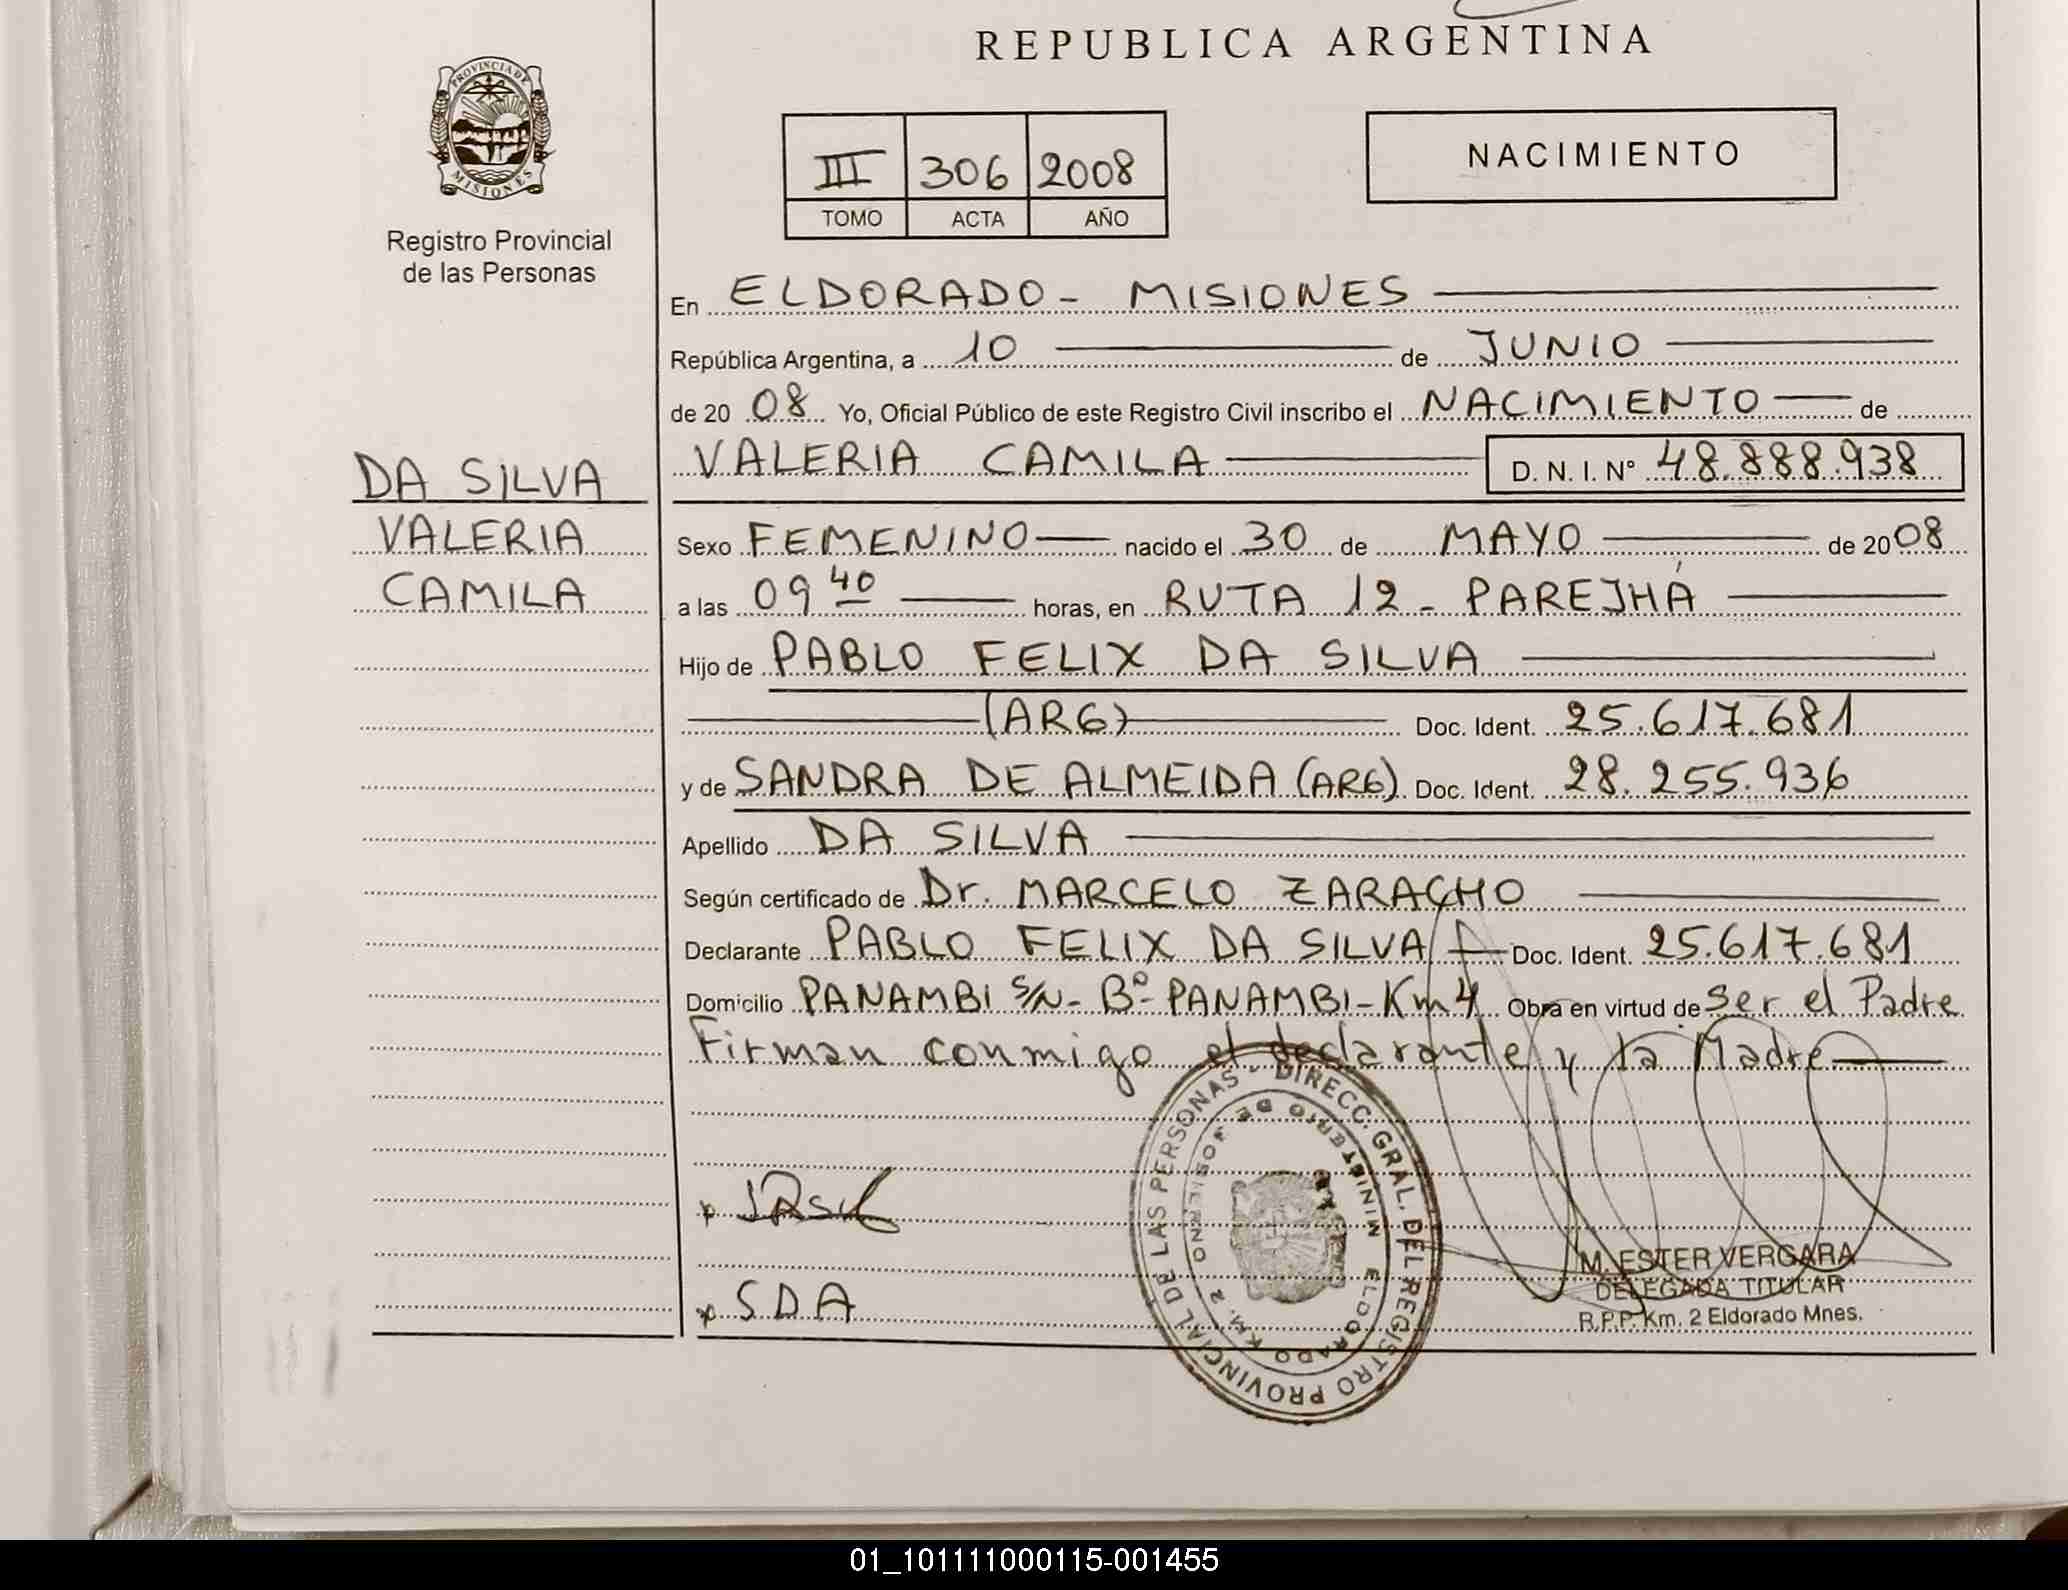 REPUBLICA ARGENTINA
PROVINCIA DE
MISIONES
Registro Provincial
de las Personas
III 306 2008
TOMO ACTA AÑO
NACIMIENTO
En ELDORADO - MISIONES
República Argentina, a 10 de JUNIO
de 20 08 Yo, Oficial Público de este Registro Civil inscribo el NACIMIENTO de
VALERIA CAMILA D. N. I. Nº 48.888.938
DA SILVA
VALERIA
CAMILA
Sexo FEMENINO nacido el 30 de MAYO de 2008
a las 09 40 horas, en RUTA 12 - PAREJHÁ
Hijo de PABLO FELIX DA SILVA
(ARG) Doc. Ident. 25.617.681
y de SANDRA DE ALMEIDA (ARG) Doc. Ident. 28.255.936
Apellido DA SILVA
Según certificado de Dr. MARCELO ZARACHO
Declarante PABLO FELIX DA SILVA Doc. Ident. 25.617.681
Domicilio PANAMBI S/N - Bº - PANAMBI - Km 4 Obra en virtud de Ser el Padre
Firman conmigo el declarante y la Madre
DIRECC. GRAL. DEL REGISTRO PROVINCIAL DE LAS PERSONAS -
MINISTERIO DE GOBIERNO
ELDORADO KM. 2
x S.D.A
M. ESTER VERGARA
DELEGADA TITULAR
R.P.P. Km. 2 Eldorado Mnes.
01_101111000115-001455